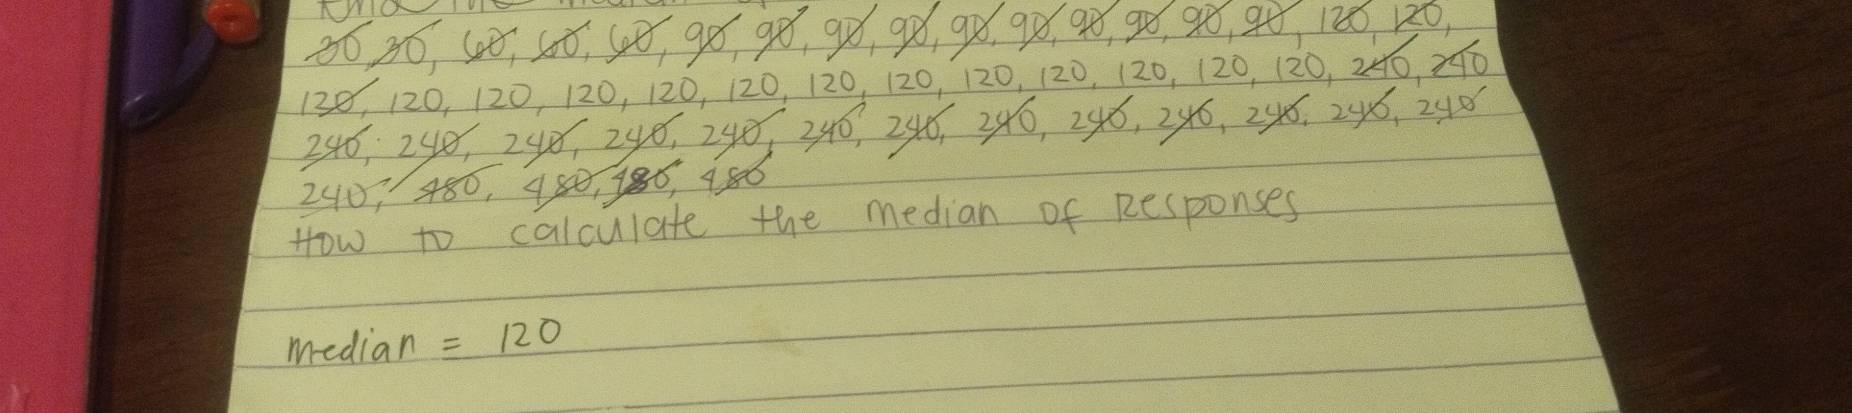 Find the median of
30, 30, 60, 60, 60, 90, 90, 90, 90, 90, 90, 90, 90, 90, 90, 120, 120,
120, 120, 120, 120, 120, 120, 120, 120, 120, 120, 120, 120, 120, 240, 240
240, 240, 240, 240, 240, 240, 240, 240, 240, 240, 240, 240, 240
240, 480, 480, 480, 480
How to calculate the median of Responses
median = 120